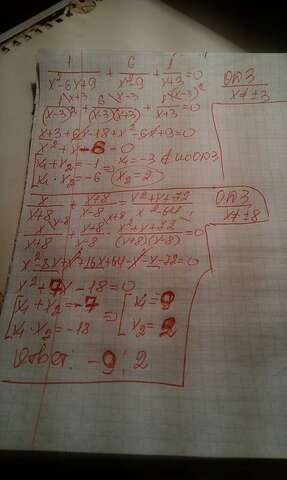 1/(x²-6x+9) + 6/(x²-9) + 1/(x+3) = 0 ОДЗ
x≠±3
1/(x-3)² + 6/(x-3)(x+3) + 1/(x+3) = 0
x+3+6x-18+x²-6x+9=0
x²+x-6=0
[x₁+x₂=-1 => x₁=-3 ∉ ПО ОДЗ
[x₁·x₂=-6 x₂=2
x/(x+8) + (x+8)/(x-8) = (x²+x+72)/(x²-64) ОДЗ
x≠±8
x/(x+8) + (x+8)/(x-8) - (x²+x+72)/(x+8)(x-8) = 0
x²-8x+x²+16x+64-x²-x-72=0
x²+7x-18=0
[x₁+x₂=-7 => [x₁=9
[x₁·x₂=-18 x₂=2
Ответ: -9; 2